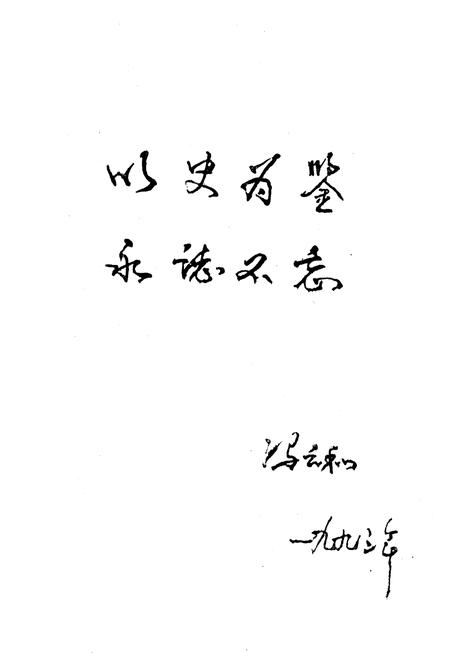 以史为鉴
永誌不忘
冯云和
一九九三年